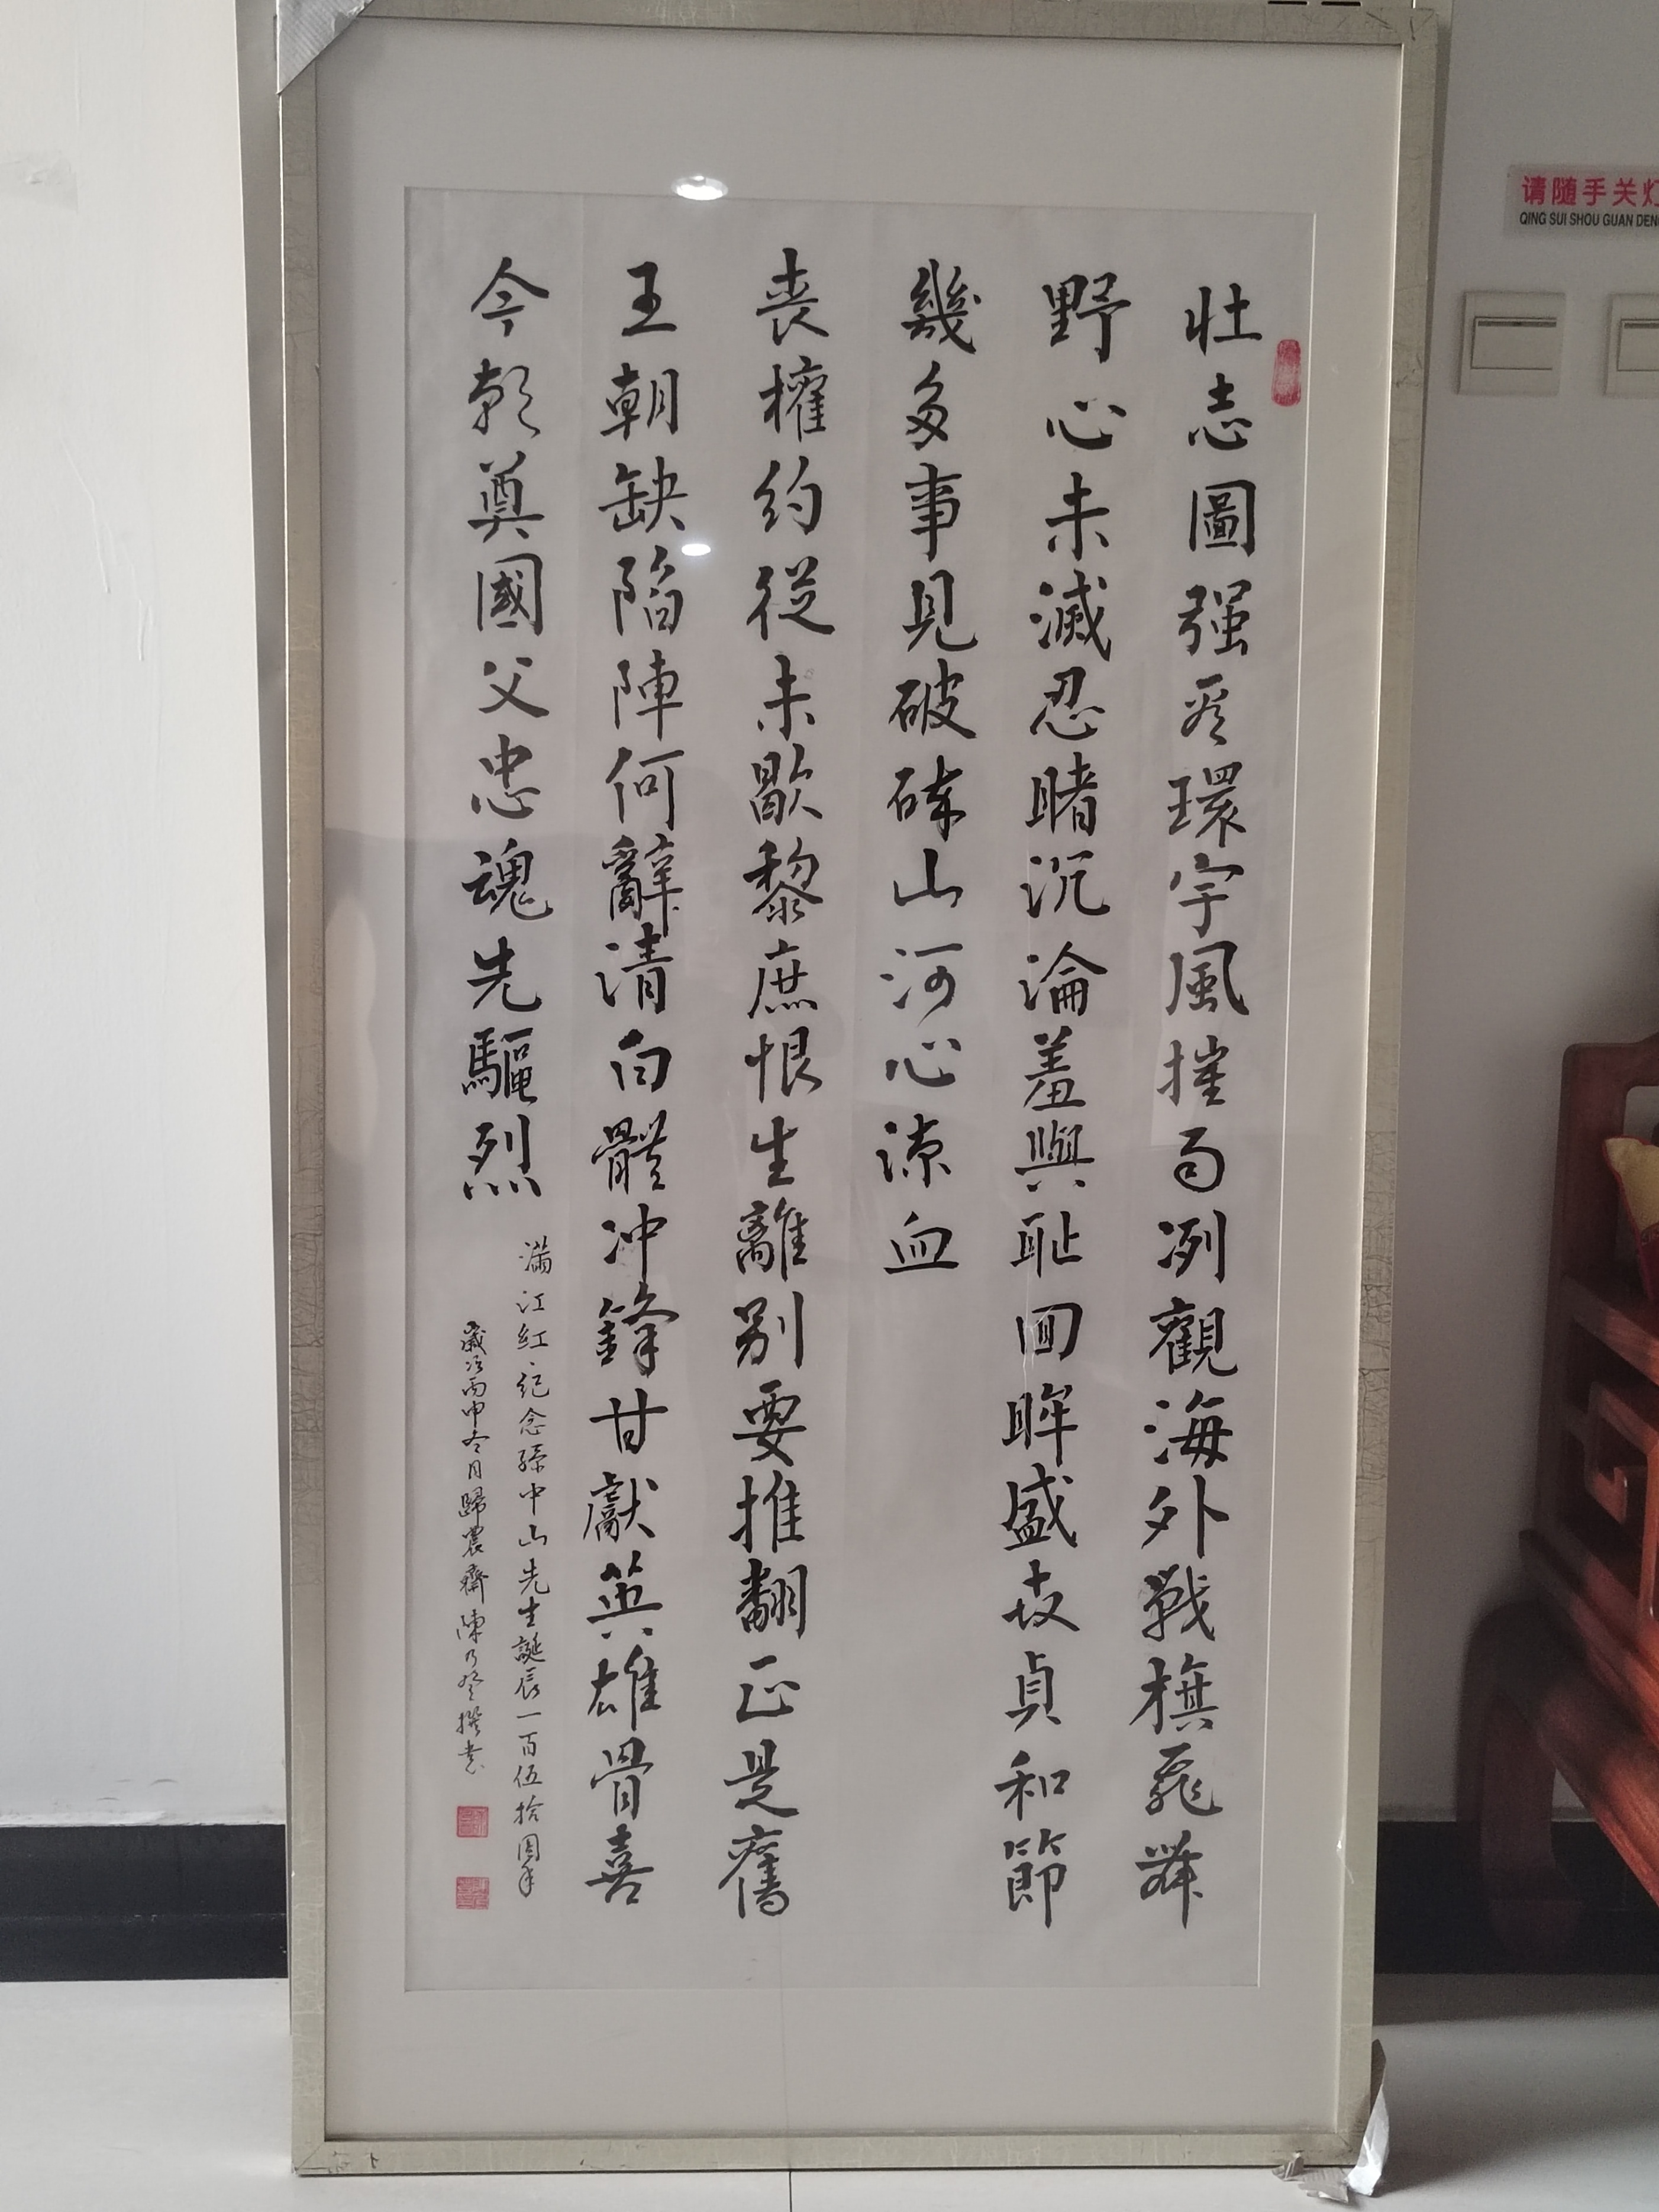 壮志圖强爰環宇風摧雨冽觀海外戰旗飛舞
野心未滅忍睹沉淪羞與恥回眸盛衰貞和節
幾多事見破碎山河心涼血
喪權約從未歇黎庶恨生離别要推翻正是舊
王朝缺陷陣何辭清白體冲鋒甘獻英雄骨喜
今朝奠國父忠魂先驅烈
滿江紅·紀念孫中山先生誕辰一百伍拾周年
歲次丙申冬月歸農齋陳乃登撰書
请随手关灯
QING SUI SHOU GUAN DENG